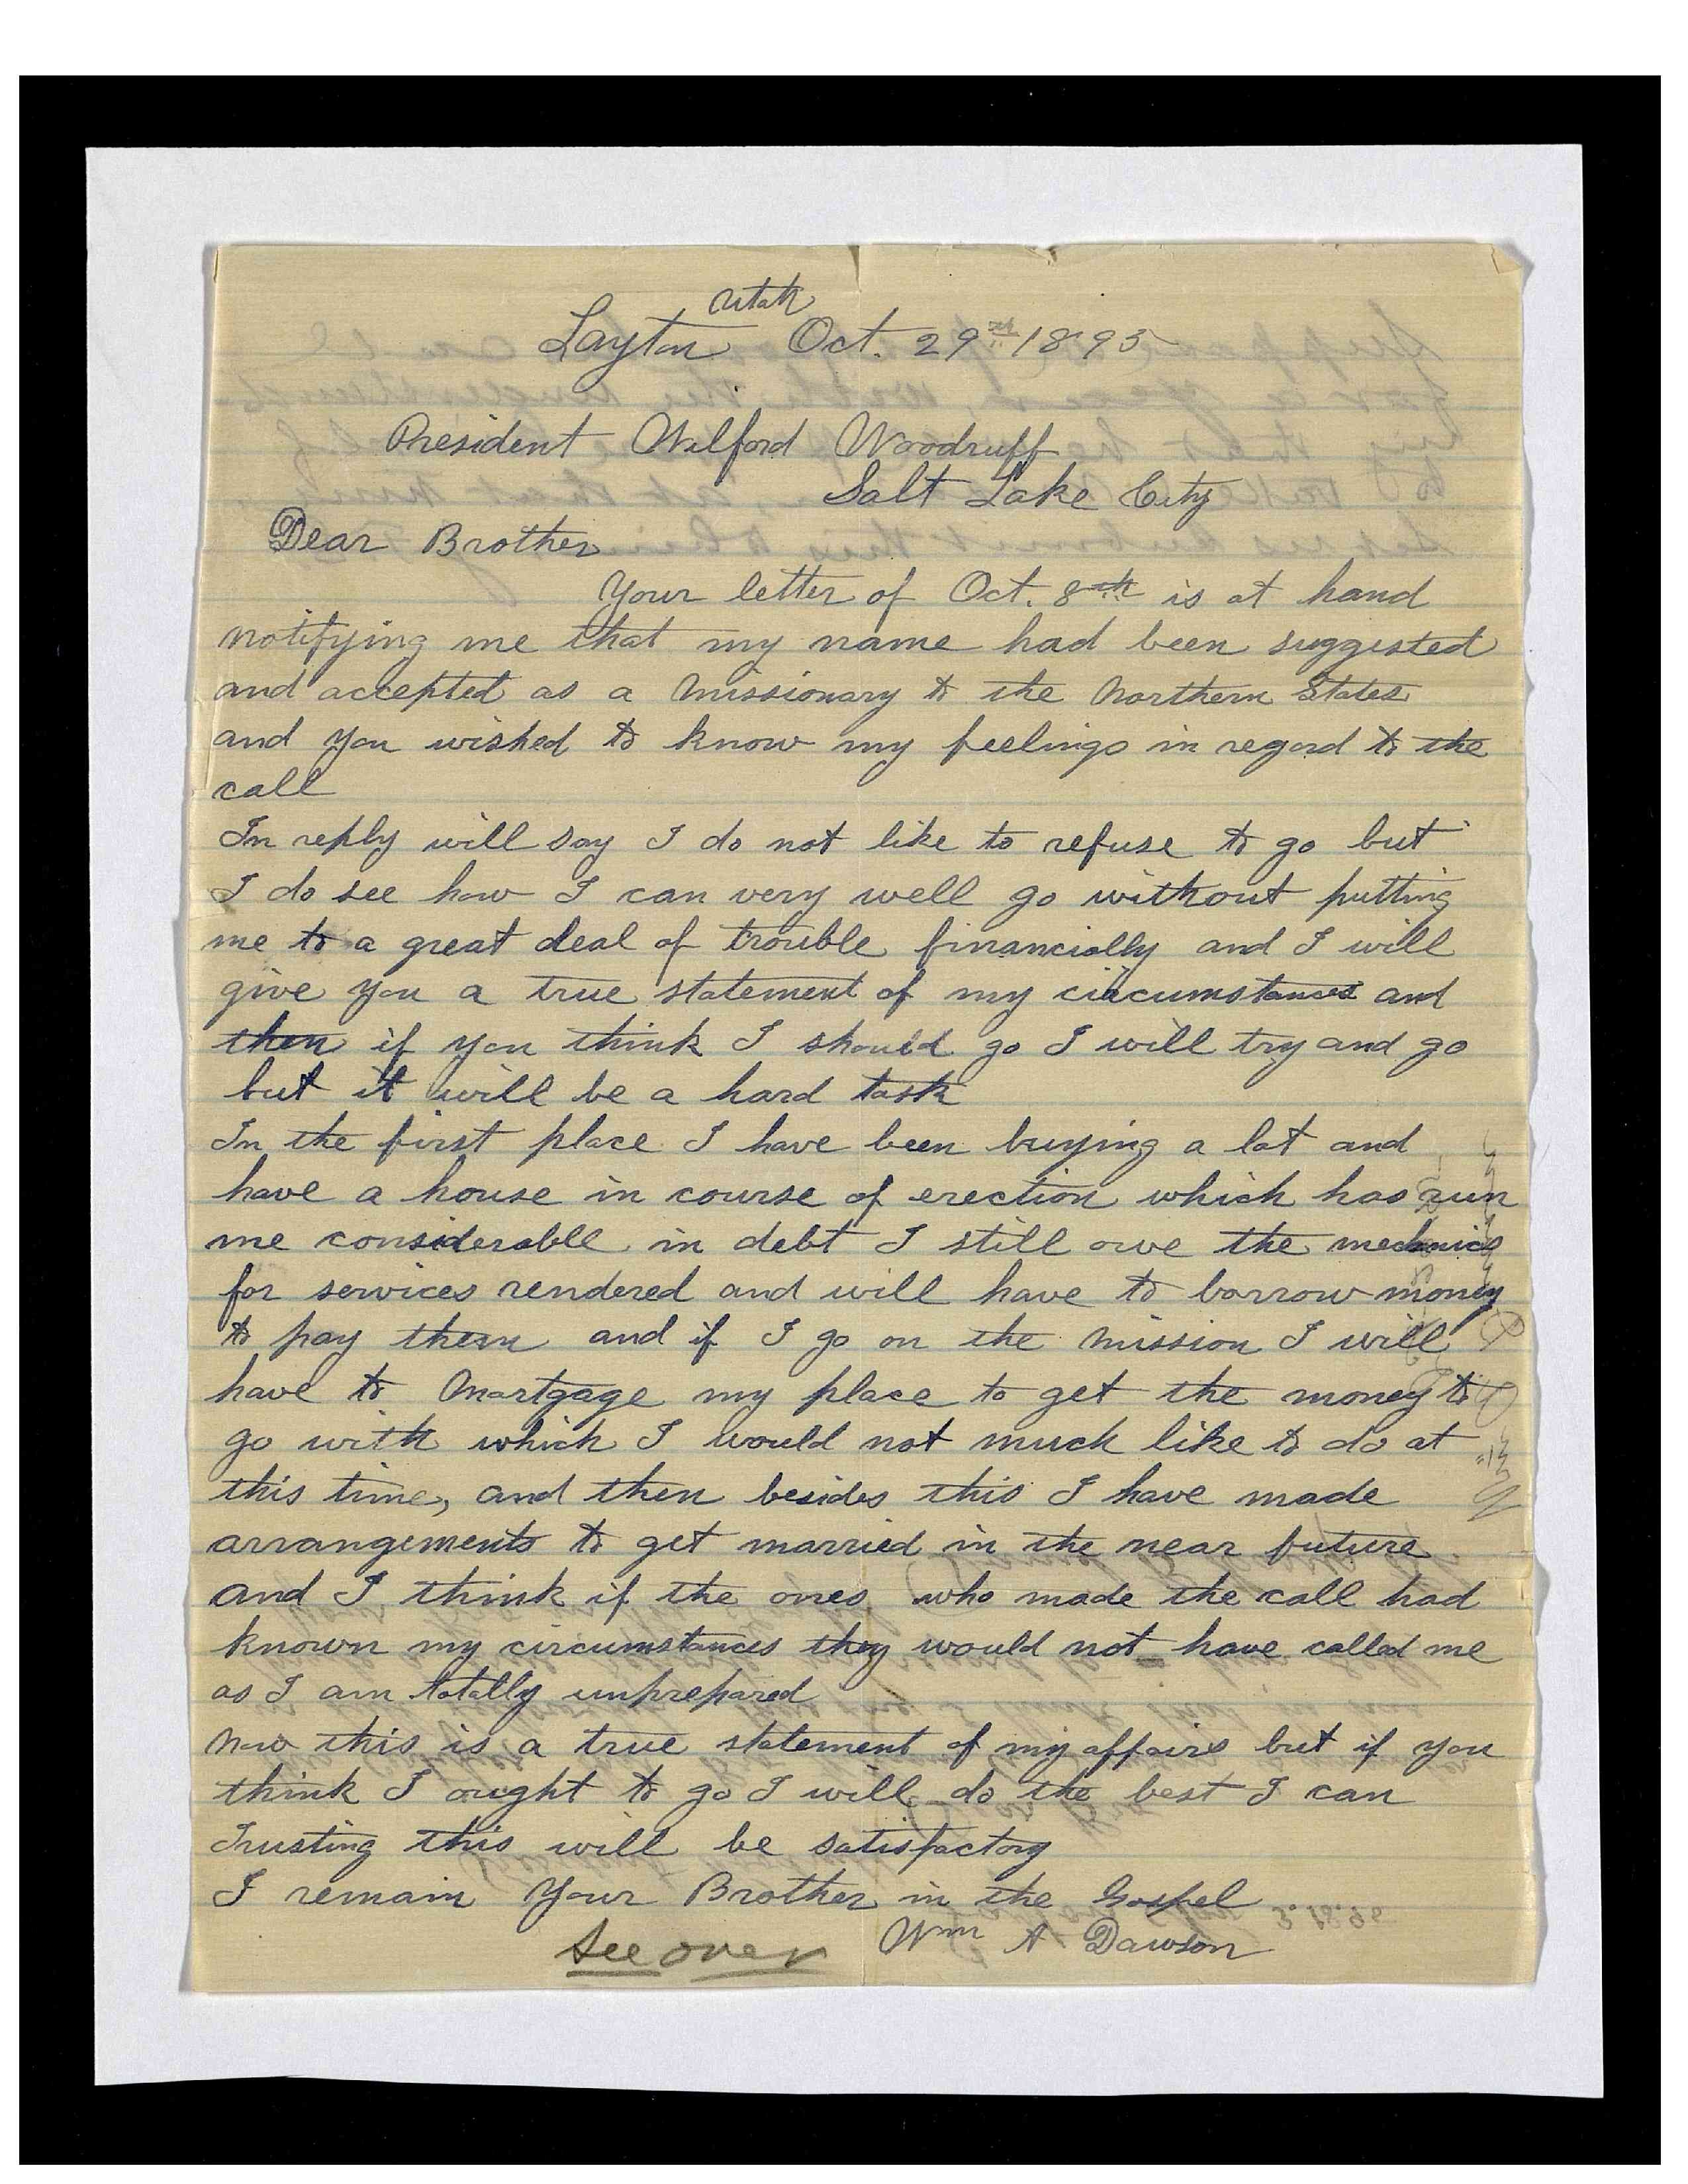 Utah
Layton Oct. 29th 1895
President Wilford Woodruff
Salt Lake City
Dear Brother
Your letter of Oct. 8th is at hand
notifying me that my name had been suggested
and accepted as a missionary to the Northern States
and you wished to know my feelings in regard to the
call
In reply will say I do not like to refuse to go but
I do see how I can very well go without putting
me to a great deal of trouble financially and I will
give you a true statement of my circumstances and
then if you think I should go I will try and go
but it will be a hard task
In the first place I have been buying a lot and
have a house in course of erection which has run
me considerable in debt I still owe the mechanics
for services rendered and will have to borrow money
to pay them and if I go on the mission I will
have to Mortgage my place to get the money to
go with which I would not much like to do at
this time, and then besides this I have made
arrangements to get married in the near future
and I think if the ones who made the call had
known my circumstances they would not have called me
as I am totally unprepared
Now this is a true statement of my affairs but if you
think I ought to go I will do the best I can
Trusting this will be satisfactory
I remain Your Brother in the Gospel
Wm A Dawson
see over